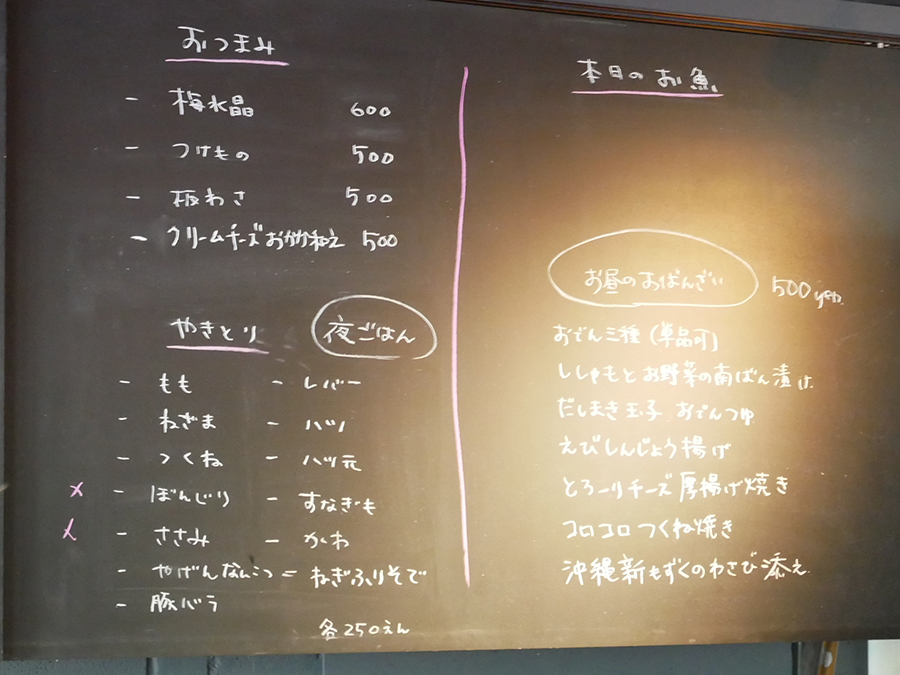 おつまみ
- 梅水晶 600
- つけもの 500
- 板わさ 500
- クリームチーズおかかねえ 500
やきとり 夜ごはん
- もも - レバー
- ねぎま - ハツ
- つくね - ハツ元
x - ぼんじり - すなぎも
x - ささみ - かわ
- やげんなんこつ = ねぎふりそで
- 豚バラ
各250えん
本日のお魚
お昼のおばんざい 500yen.
おでん三種(単品可)
ししゃもとお野菜の南ばん漬け
だしまき玉子 おでんつゆ
えびしんじょう揚げ
とろーりチーズ厚揚げ焼き
コロコロつくね焼き
沖縄新もずくのわさび添え